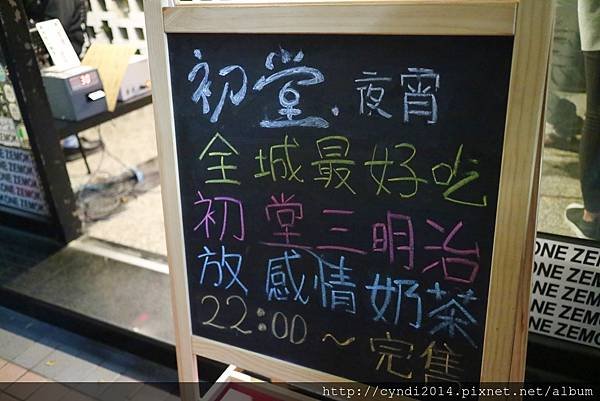 初堂.夜宵
全城最好吃
初堂三明治
放感情奶茶
22:00～完售
ONE ZEMO
ONE ZEMO
ONE ZEMO
ONE ZEMO
http://cyndi2014.pixnet.net/album